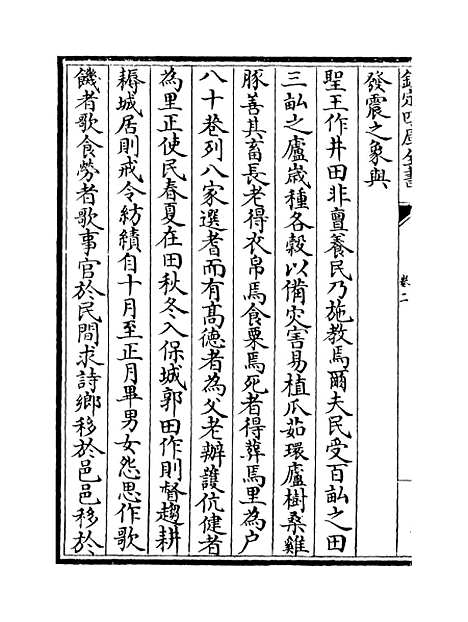 欽定四庫全書
卷二
發震之象與
聖王作井田非亶養民乃施教焉爾夫民受百畝之田
三畝之廬歲種各穀以備灾害易植瓜茹環廬樹桑雞
豚善其畜長老得衣帛焉食粟焉死者得葬焉里為户
八十巷列八家選耆而有高德者為父老辦護伉健者
為里正使民春夏在田秋冬入保城郭田作則督趨耕
耨城居則戒令紡績自十月至正月畢男女怨思作歌
饑者歌食勞者歌事官於民間求詩鄉移於邑邑移於